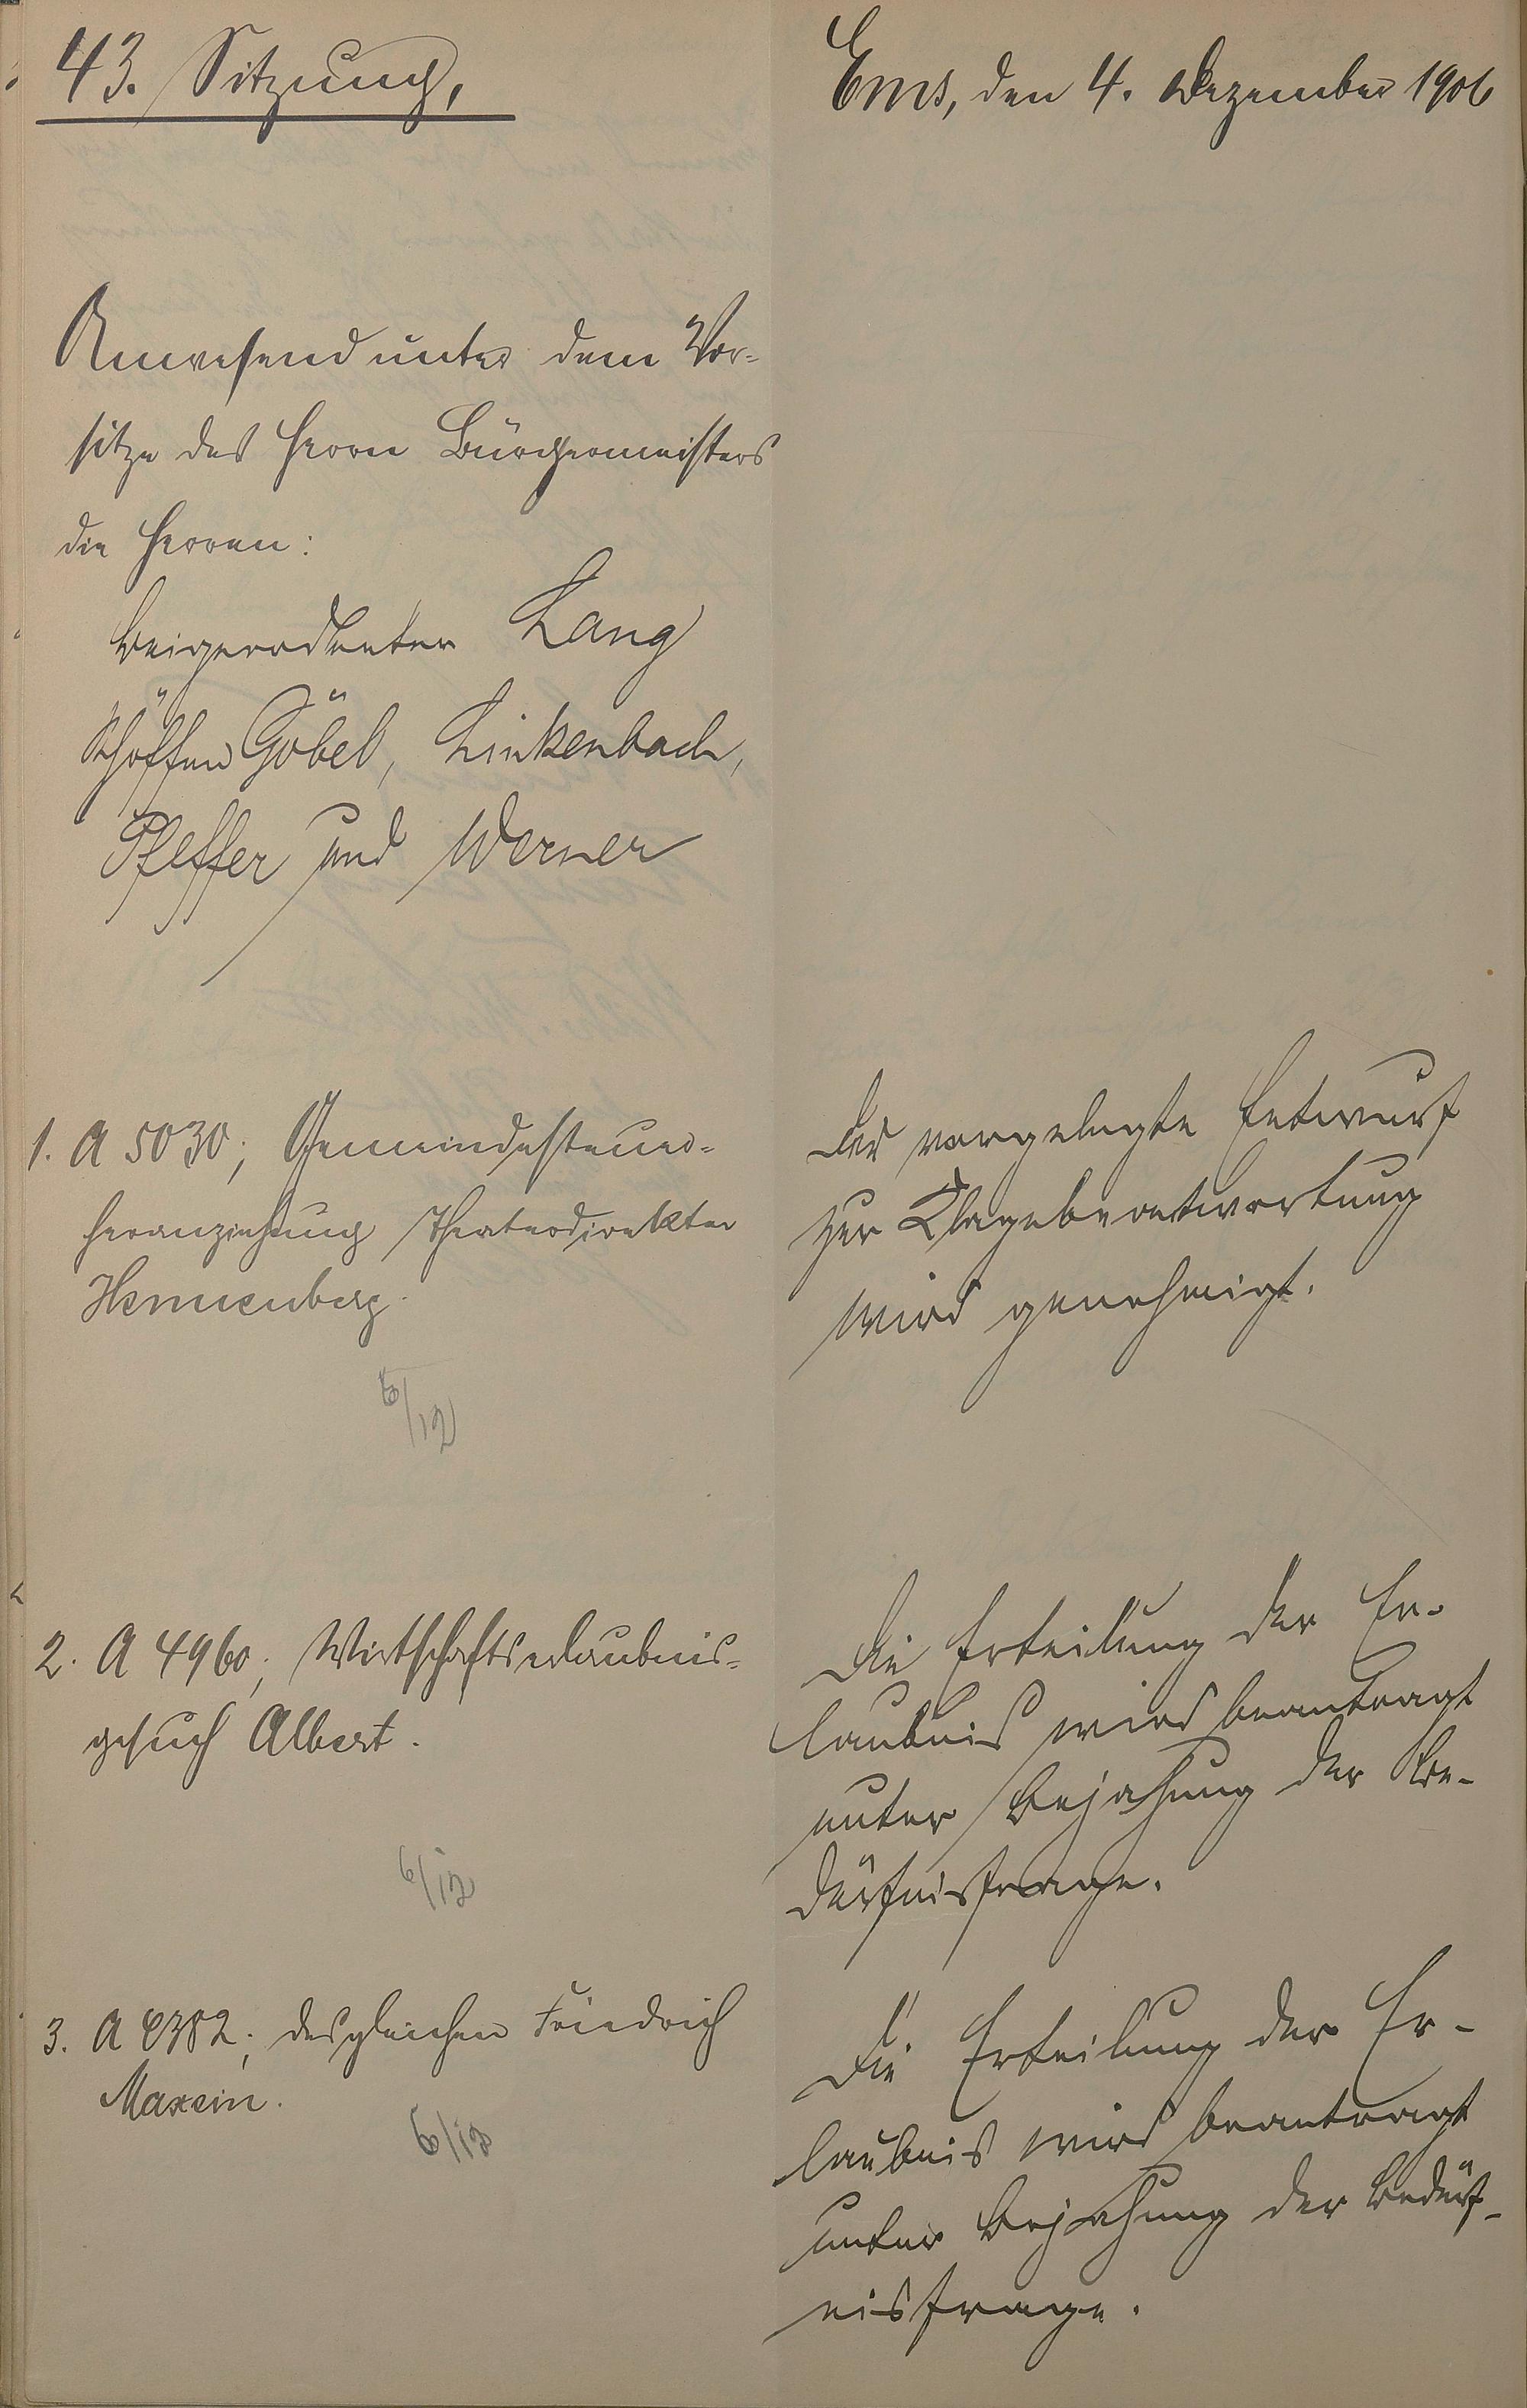 43. Sitzung,
Ems, den 4. Dezember 1906
Anwesend unter dem Vor-
sitze des Herrn Bürgermeisters
die Herren:
Beigeordneter Lang
Schöffen Göbel, Linkenbach,
Pfeffer und Werner
1. A 5030; Gemeindesteuer-
heranziehung Theaterdirektor
Hennenberg.
6/12
Der vorgelegte Entwurf
zur Klagebeantwortung
wird genehmigt.
2. A 4960; Wirtschaftserlaubnis-
gesuch Albert.
6/12
Die Erteilung der Er-
laubnis wird beantragt
unter Bejahung der Be-
dürfnisfrage.
3. A desgleichen Friedrich
Maxein.
6/12
Die Erteilung der Er-
laubnis wird beantragt
unter Bejahung der Bedürf-
nisfrage.